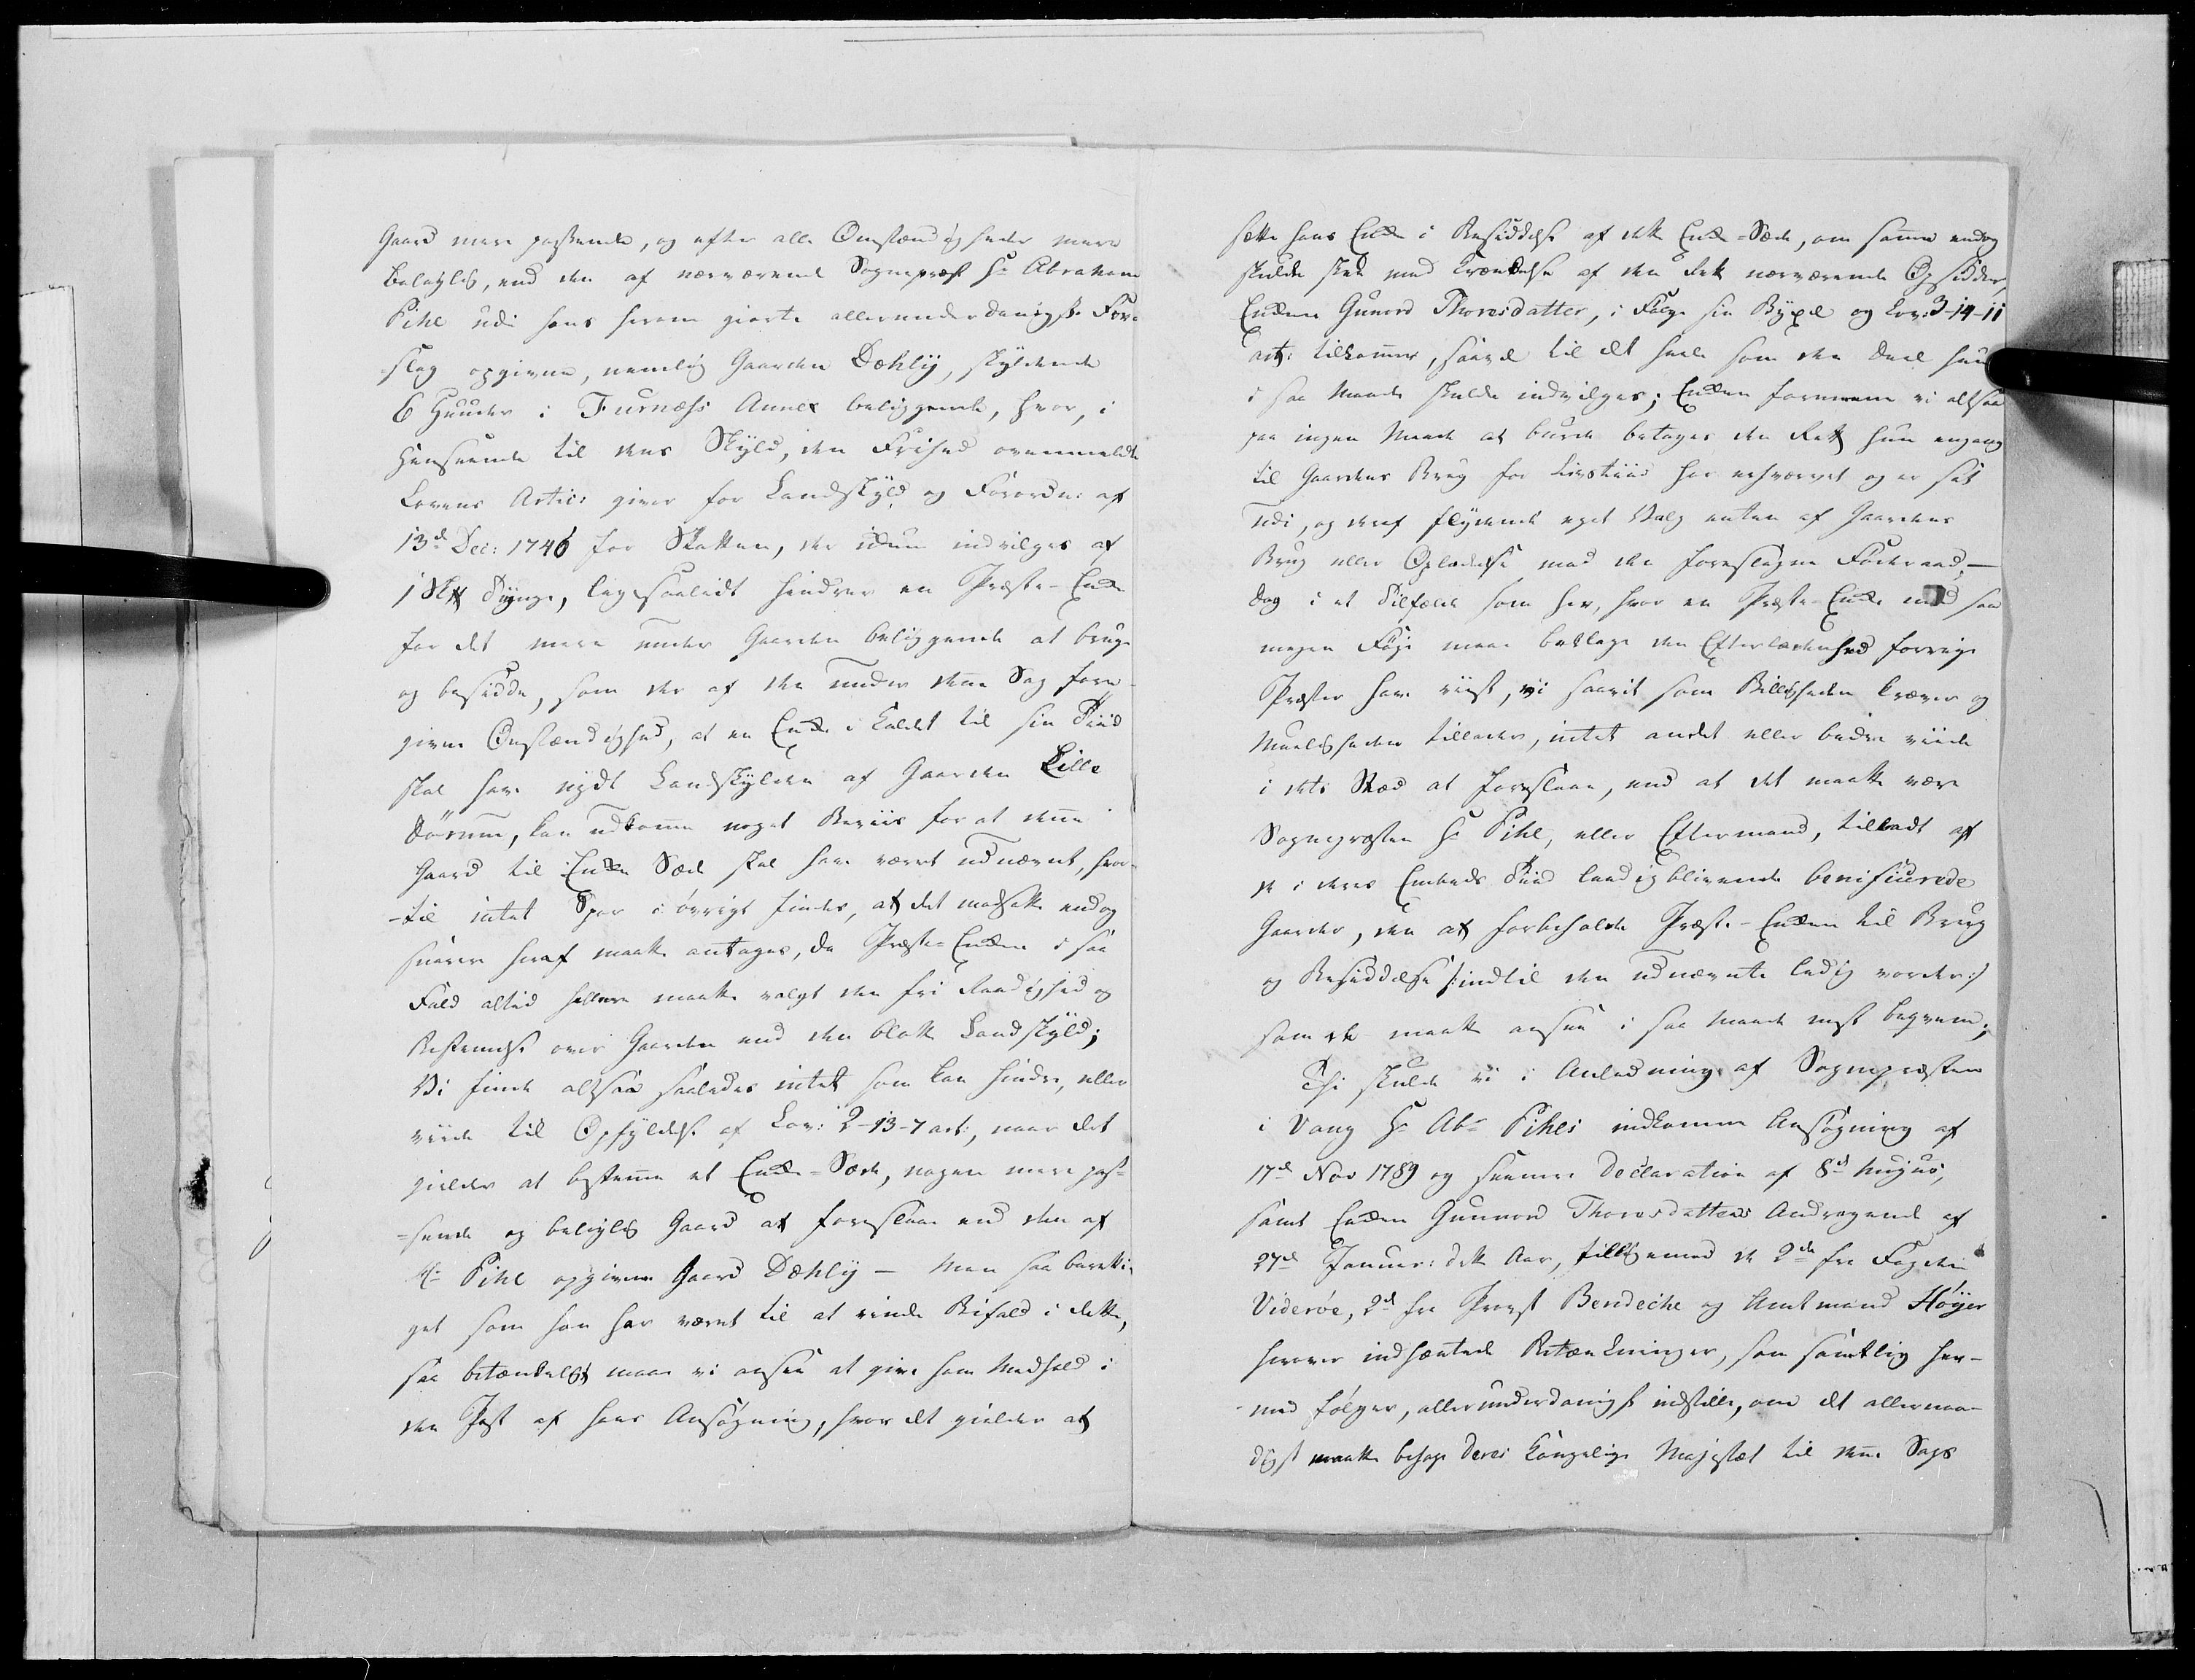 Gaard mere passende, og efter alle Omstændigheder mere
beleylig, end den af nærværende Sognepræst Hr Abraham
Pihl udi hans herom giorte allerunderdanigste Fore-
slag opgivne, nemlig Gaarden Dæhly, skyldende
6 Huuder i Furnæss Annex beliggende, hvor, i
Henseende til dens Skyld, den Frihed ovenmeldte
Lovens Artic: giver for Landskyld og Forordn: af
13d Dec: 1746 for Skatten, der idum indvilges af
1 Sk Tynge, ligesaalidt hindrer en Præste-Enke
for det mere under Gaarden beliggende at bruge
og besidde, som der af den under denne Sag fore-
givne Omstændighed, at en Enke i Kaldet til sin Tiid
skal have nydt Landskylden af Gaarden Lille
Dørum, kan udkomme noget Beviis for at denne
Gaard til Enke Sæde skal have været udnævnt, hvor-
-til intet Spor i øvrigt findes, at det modsatte endog
snarere heraf maatte antages, da Præste-Enken i saa
Fald altid hellere maatte valgt den fri Raadighed og
Bestemmelse over Gaarden end den blotte Landskyld;
Vi finde altsaa saaledes intet som kan hindre, eller
viide til Opfyldelse af Lov: 2-13-7 art:, naar det
gielder at bestemme et Enke-Sæde, nogen mere pas-
=sende og beleylig Gaard at foreslaae end den af
Hr Pihl opgivne Gaard Dæhly — Men saa beretti-
get som han har været til at vinde Bifald i dette,
saa betænkeligt maae vi ansee at give ham Medhold i
den Post af hans Ansøgning, hvor det gielder at
sætte hans Enke i Besiddelse af dette Enke-Sæde, om samme endog
skulde skee med Krænkelse af den Ret nærværende Opsidder
Enken Gunord Thoresdatter, i Følge sin Bygsel og Lov: 3-14-11
art: tilkommer, saavel til det heele som den Deel hun
i saa Maade skulde indvilges; Enken formeene vi altsaa
paa ingen Maade at burde betages den Rett hun engang
til Gaardens Brug for Livstiid har erhvervet og er sat
udi, og deraf flydende eget Valg enten af Gaardens
Brug eller Opladelse med den foreslagne Föderaad, —
Dog i et Tilfælde som her, hvor en Præste-Enke med saa
megen Føje maae beklage den Efterladenhed forrige
Præster have viist, vi saavit som Billigheden kræver og
Mueligheden tillader, intet andet eller bedre viide
i dets Sted at foreslaae, end at det maatte være
Sognepræsten Hr Pihl, eller Eftermand, tilladt af
de i deres Embeds Tiid leedigblivende benificerede
Gaarder, een at forbeholde Præste-Enken til Brug
og Besiddelse /:indtil den udnævnte ledig vorder:/
som de maatte ansee i saa Maade mest beqvem;
Thi skulde vi i Anledning af Sognepræsten
i Vang Hr Abr Pihls indkomne Ansøgning af
17de Nov 1789 og seenere Declaration af 8d hujus,
samt Enken Gunnord Thoresdatters Andragende af
27de Januar: dette Aar, tilligemed de 2de fra Fogden
Viderøe, 2de fra Provst Bendeche og Amtmand Høyer
herover indhæntede Betænkninger, som samtlig her-
-med følger, allerunderdanigst indstille, om det allernaa-
digst maatte behage Deres Kongelige Majestæt til denne Sags